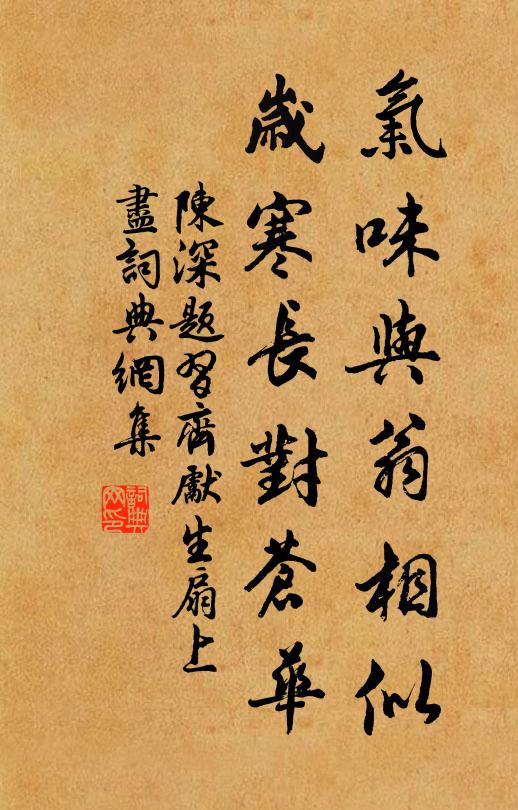 氣味與翁相似
歲寒長對蒼華
陳深題習齊獻生扇上
畫詞典網集
詞典網印